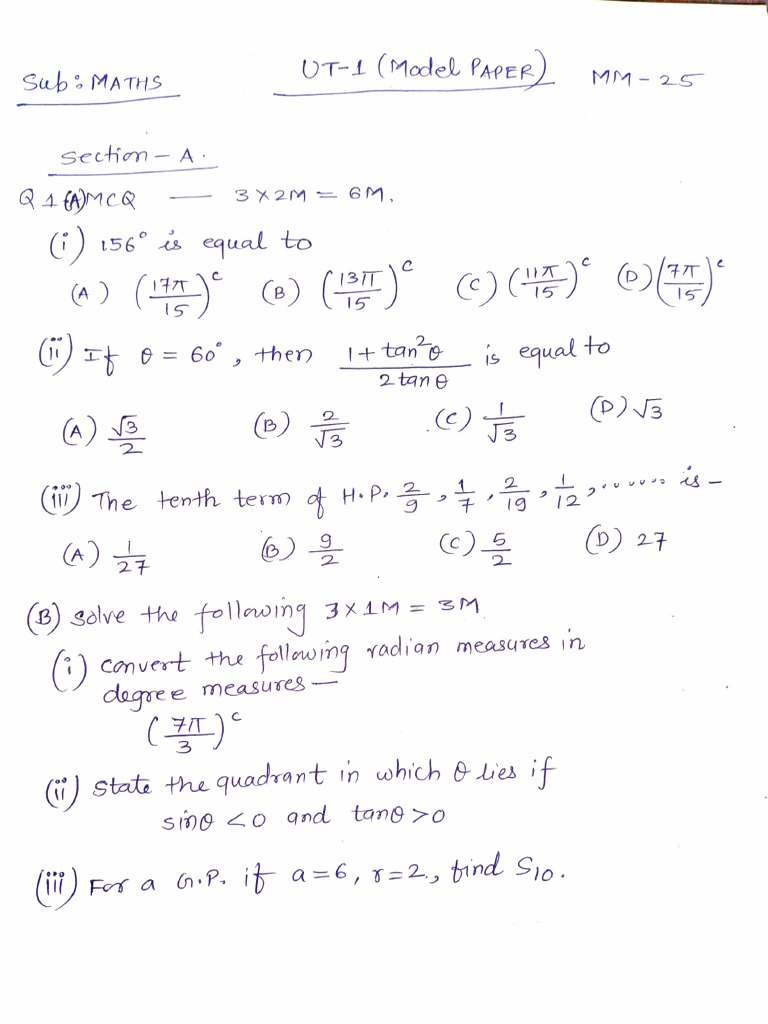 Sub: MATHS UT-1 (Model PAPER) MM - 25
Section - A.
Q 1 (A) MCQ — 3 X 2M = 6M.
(i) 156° is equal to
(A) (17π/15)ᶜ (B) (13π/15)ᶜ (C) (11π/15)ᶜ (D) (7π/15)ᶜ
(ii) If θ = 60°, then (1 + tan²θ)/(2 tanθ) is equal to
(A) √3/2 (B) 2/√3 (C) 1/√3 (D) √3
(iii) The tenth term of H.P. 2/9, 1/7, 2/19, 1/12, ....... is -
(A) 1/27 (B) 9/2 (C) 5/2 (D) 27
(B) Solve the following 3 X 1M = 3M
(i) convert the following radian measures in
degree measures —
(7π/3)ᶜ
(ii) State the quadrant in which θ lies if
sinθ <0 and tanθ >0
(iii) For a G.P. if a=6, r=2, find S₁₀.